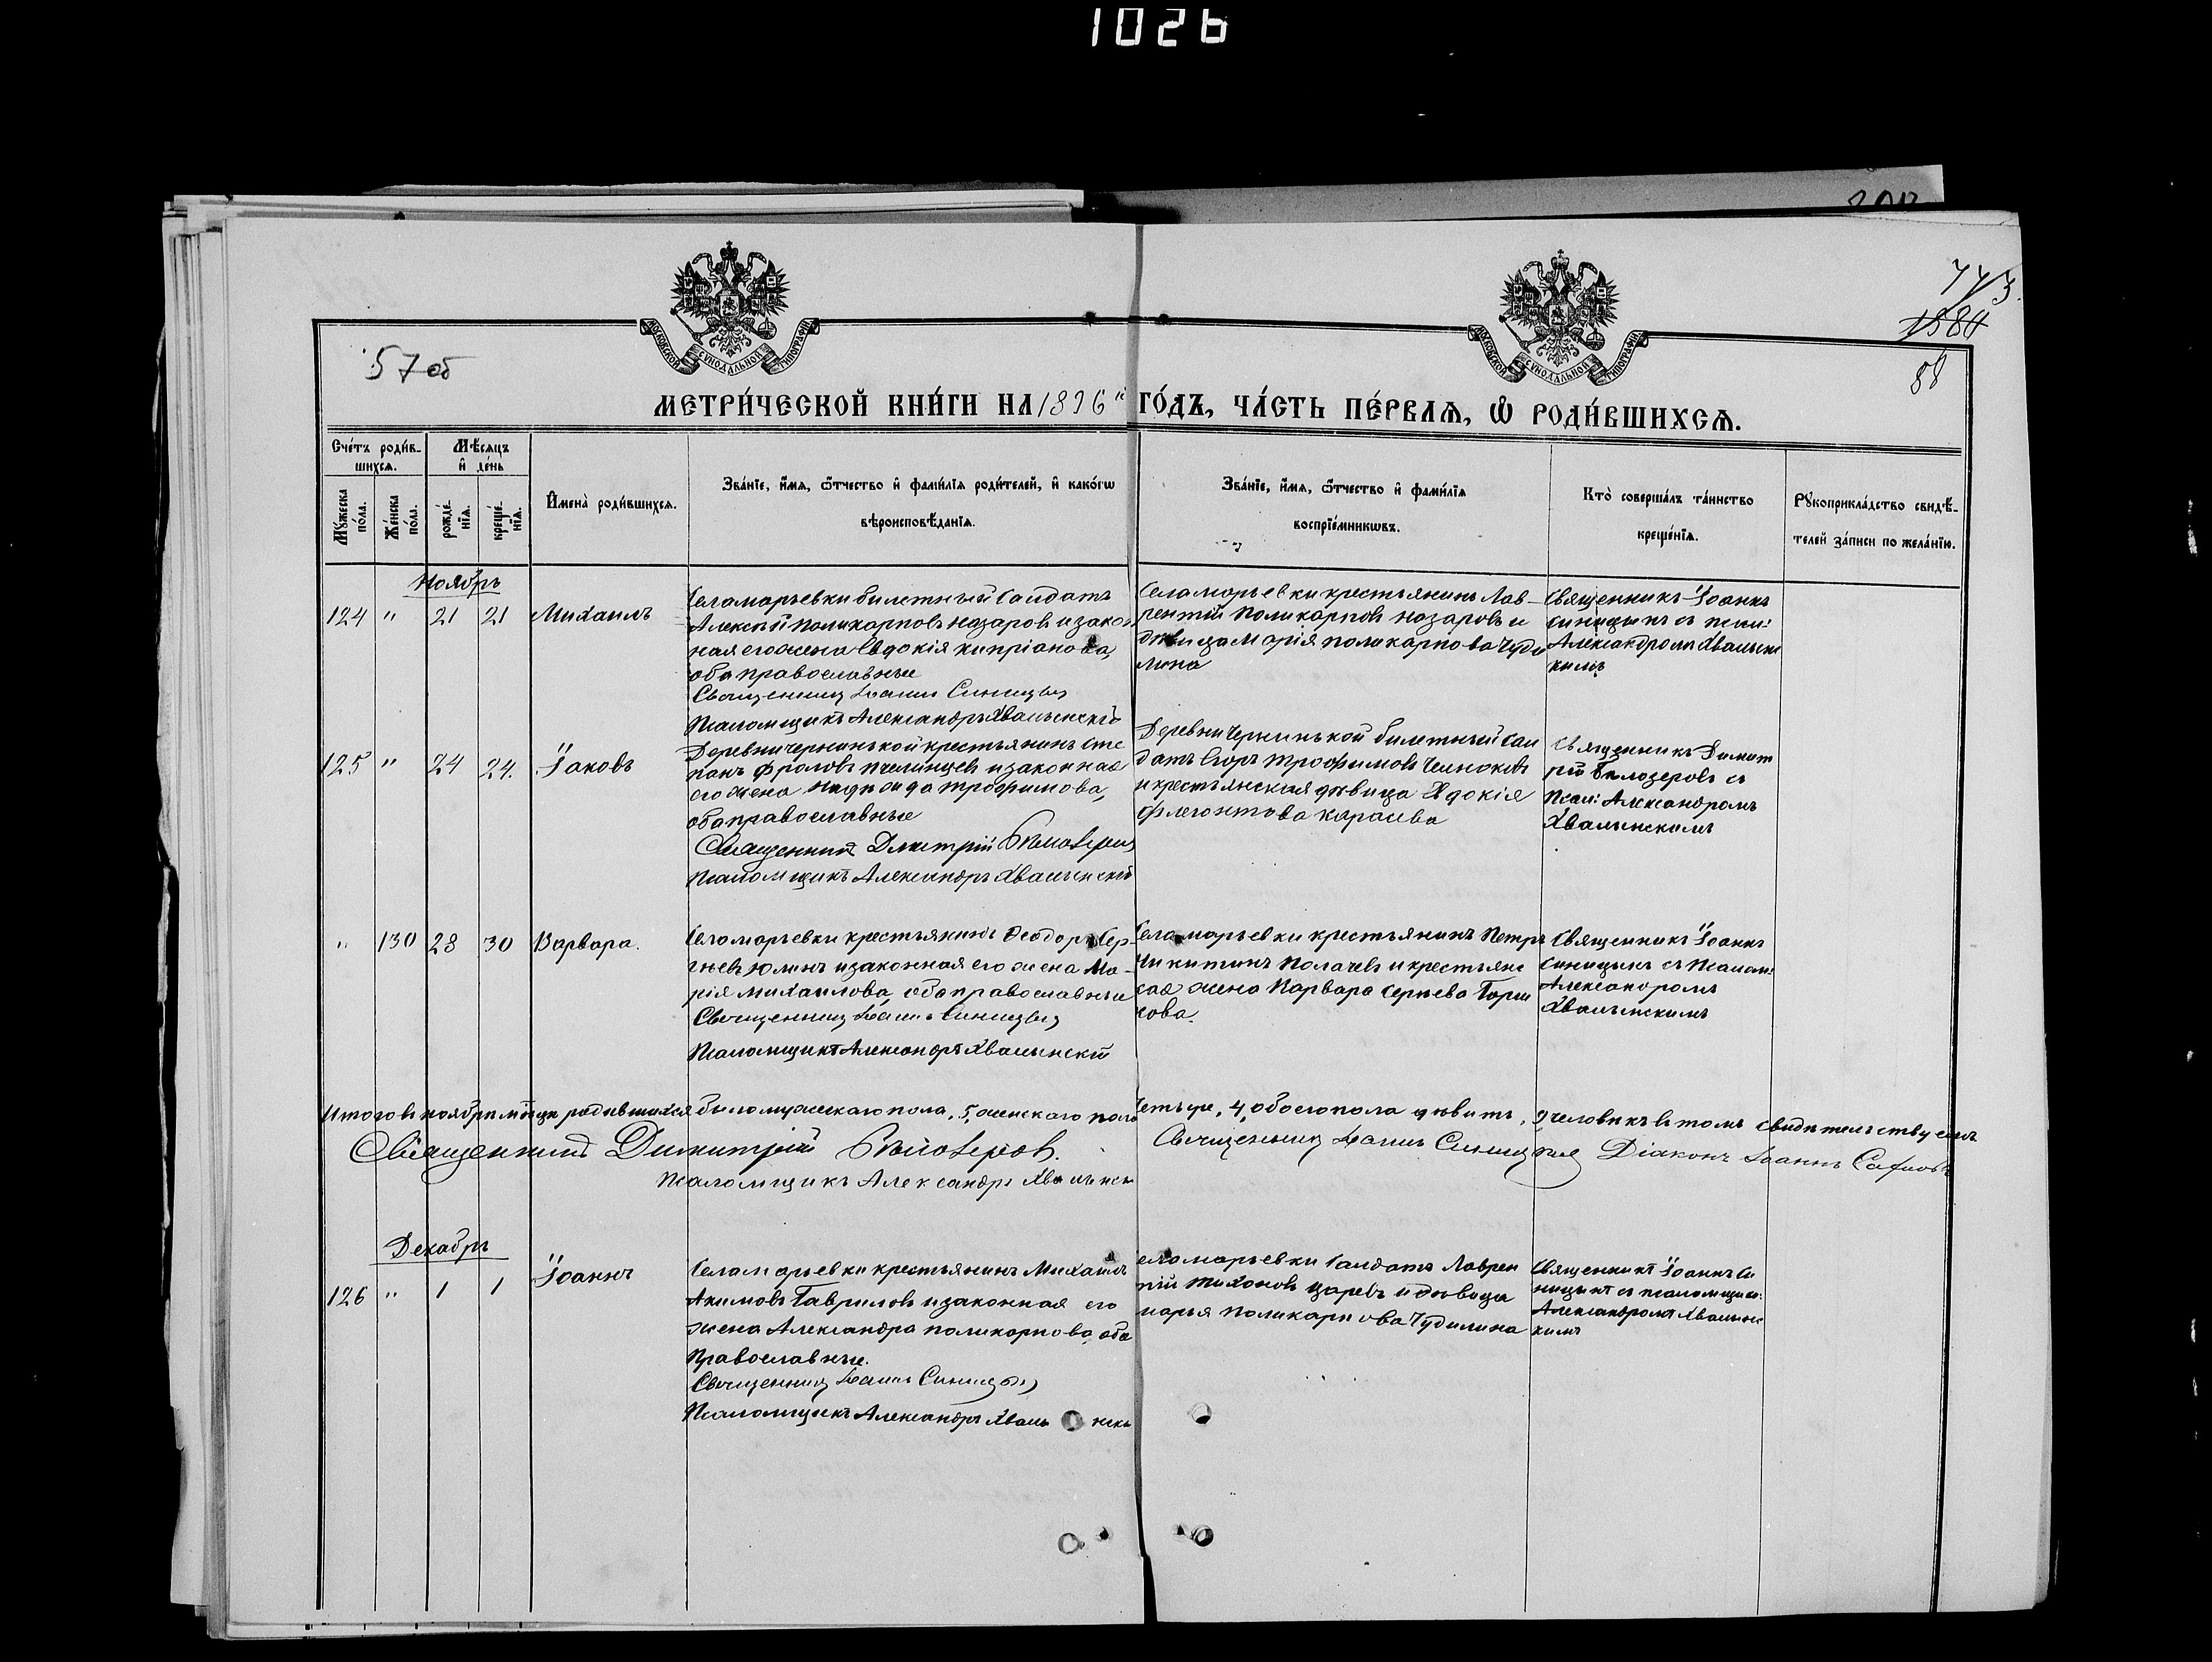 1026
743.
1884
88
57 об
МОСКОВСКОЙ СУНОДАЛЬНОЙ ТИПОГРАФІИ
МОСКОВСКОЙ СУНОДАЛЬНОЙ ТИПОГРАФІИ
МЕТРИ́ЧЕСКОЙ КНИ́ГИ НА 1896 ГО́ДЪ, ЧА́СТЬ ПЕ́РВАѦ, Ѡ҆ РОДИ́ВШИХСѦ.
Сче́тъ роди́в-
шихсѧ.
Мѣ́сѧцъ
и҆ де́нь
Мꙋ́жеска
по́ла.
Же́нска
по́ла.
рожде́-
нїѧ.
креще́-
нїѧ.
И҆мена̀ роди́вшихсѧ.
Зва́нїе, и҆́мѧ, ѻ҆́тчество и҆ фами́лїѧ роди́телей, и҆ како́гѡ
вѣроисповѣ́данїѧ.
Зва́нїе, и҆́мѧ, ѻ҆́тчество и҆ фами́лїѧ
воспрїе́мникѡвъ.
Кто̀ соверша́лъ та́инство
креще́нїѧ.
Рꙋкоприкла́дство свидѣ́-
телей за́писи по жела́нїю.
Ноябрь
124 " 21 21 Михаилъ
Села марьевки билетный Солдатъ
Алексѣй поликарповъ назаровъ и закон
ная его жена Евдокія кипріанова,
оба православные
Священникъ Іоаннъ Синицынъ
Псаломщикъ Александръ Хвалынскій
Села марьевки крестьянинъ Лав-
рентій поликарповъ назаровъ и
дѣвица марія поликарпова Чуди
лина
Священникъ Іоаннъ
Синицынъ съ псал:
Александромъ Хвалынс
кимъ
125 " 24 24. Іаковъ
Деревни чернинькой крестьянинъ сте
панъ фроловъ пчелинцевъ и законная
его жена надежда трофимова,
оба православные
Священникъ Димитрій Бѣлозеровъ
Псаломщикъ Александръ Хвалынскій
Деревни Чернинькой билетный сол
датъ Егоръ трофимовъ
и крестьянская дѣвица Евдокія
флегонтова
Священникъ Димит
рій Бѣлозеровъ съ
Псал: Александромъ
Хвалынскимъ
" 130 28 30 Варвара.
Села марьевки крестьянинъ Ѳеодоръ Сер-
гѣевъ юлинъ и законная его жена Ма-
рія михаилова, оба православные
Священникъ Іоаннъ Синицынъ
Псаломщикъ Александръ Хвалынскій
Села марьевки крестьянинъ Петръ
никитинъ и крестьянс
кая жена Варвара сергѣева Горш
кова.
Священникъ Іоаннъ
Синицынъ съ псалом:
Александромъ
Хвалынскимъ
Итого въ ноябрѣ мѣсяцѣ родившихся было мужескаго пола, 5, женскаго пола четыре, 4, обоего пола девять, 9 человѣкъ въ томъ свидѣтельствуемъ
Священникъ Димитрій Бѣлозеровъ. Священникъ Іоаннъ Синицынъ Діаконъ Іоаннъ
Псаломщикъ Александръ Хвалынск
Декабрь
126 " 1 1 Іоаннъ
Села марьевки крестьянинъ Михаилъ
Акимовъ Гавриловъ и законная его
жена Александра поликарпова, оба
Православные.
Священникъ Іоаннъ Синицынъ
Псаломщикъ Александръ Хвалынскі
села марьевки Солдатъ Лаврен
тій тихоновъ царевъ и дѣвица
марья поликарпова Чудилина
Священникъ Іоаннъ Си
ницынъ съ псаломщик:
Александромъ Хвалынс
кимъ